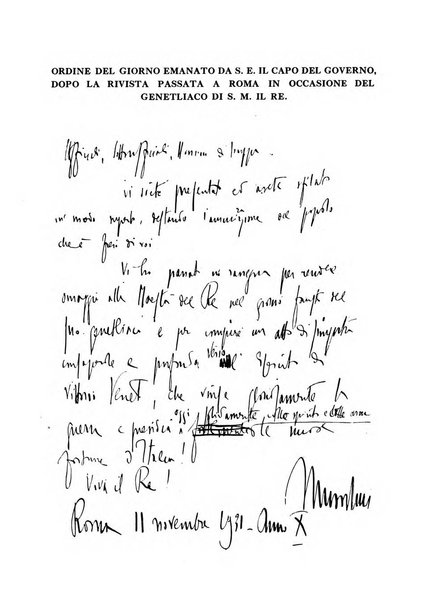 ORDINE DEL GIORNO EMANATO DA S. E. IL CAPO DEL GOVERNO,
DOPO LA RIVISTA PASSATA A ROMA IN OCCASIONE DEL
GENETLIACO DI S. M. IL RE.
Ufficiali, Sottufficiali, Uomini di truppa.
Vi siete presentati ed avete sfilato
in modo superbo, destando l'ammirazione del popolo
che è fiero di voi
Vi ho passati in rassegna per rendere
omaggio alla Maestà del Re nel giorno fausto del
suo genetliaco e per compiere un atto di
importante e verso Esercito di
Vittorio Veneto, che vinse gloriosamente la
guerra e presidia oggi collo spirito e colle armi
fortune d'Italia!
Viva il Re!
Mussolini
Roma 11 novembre 1931 - Anno X